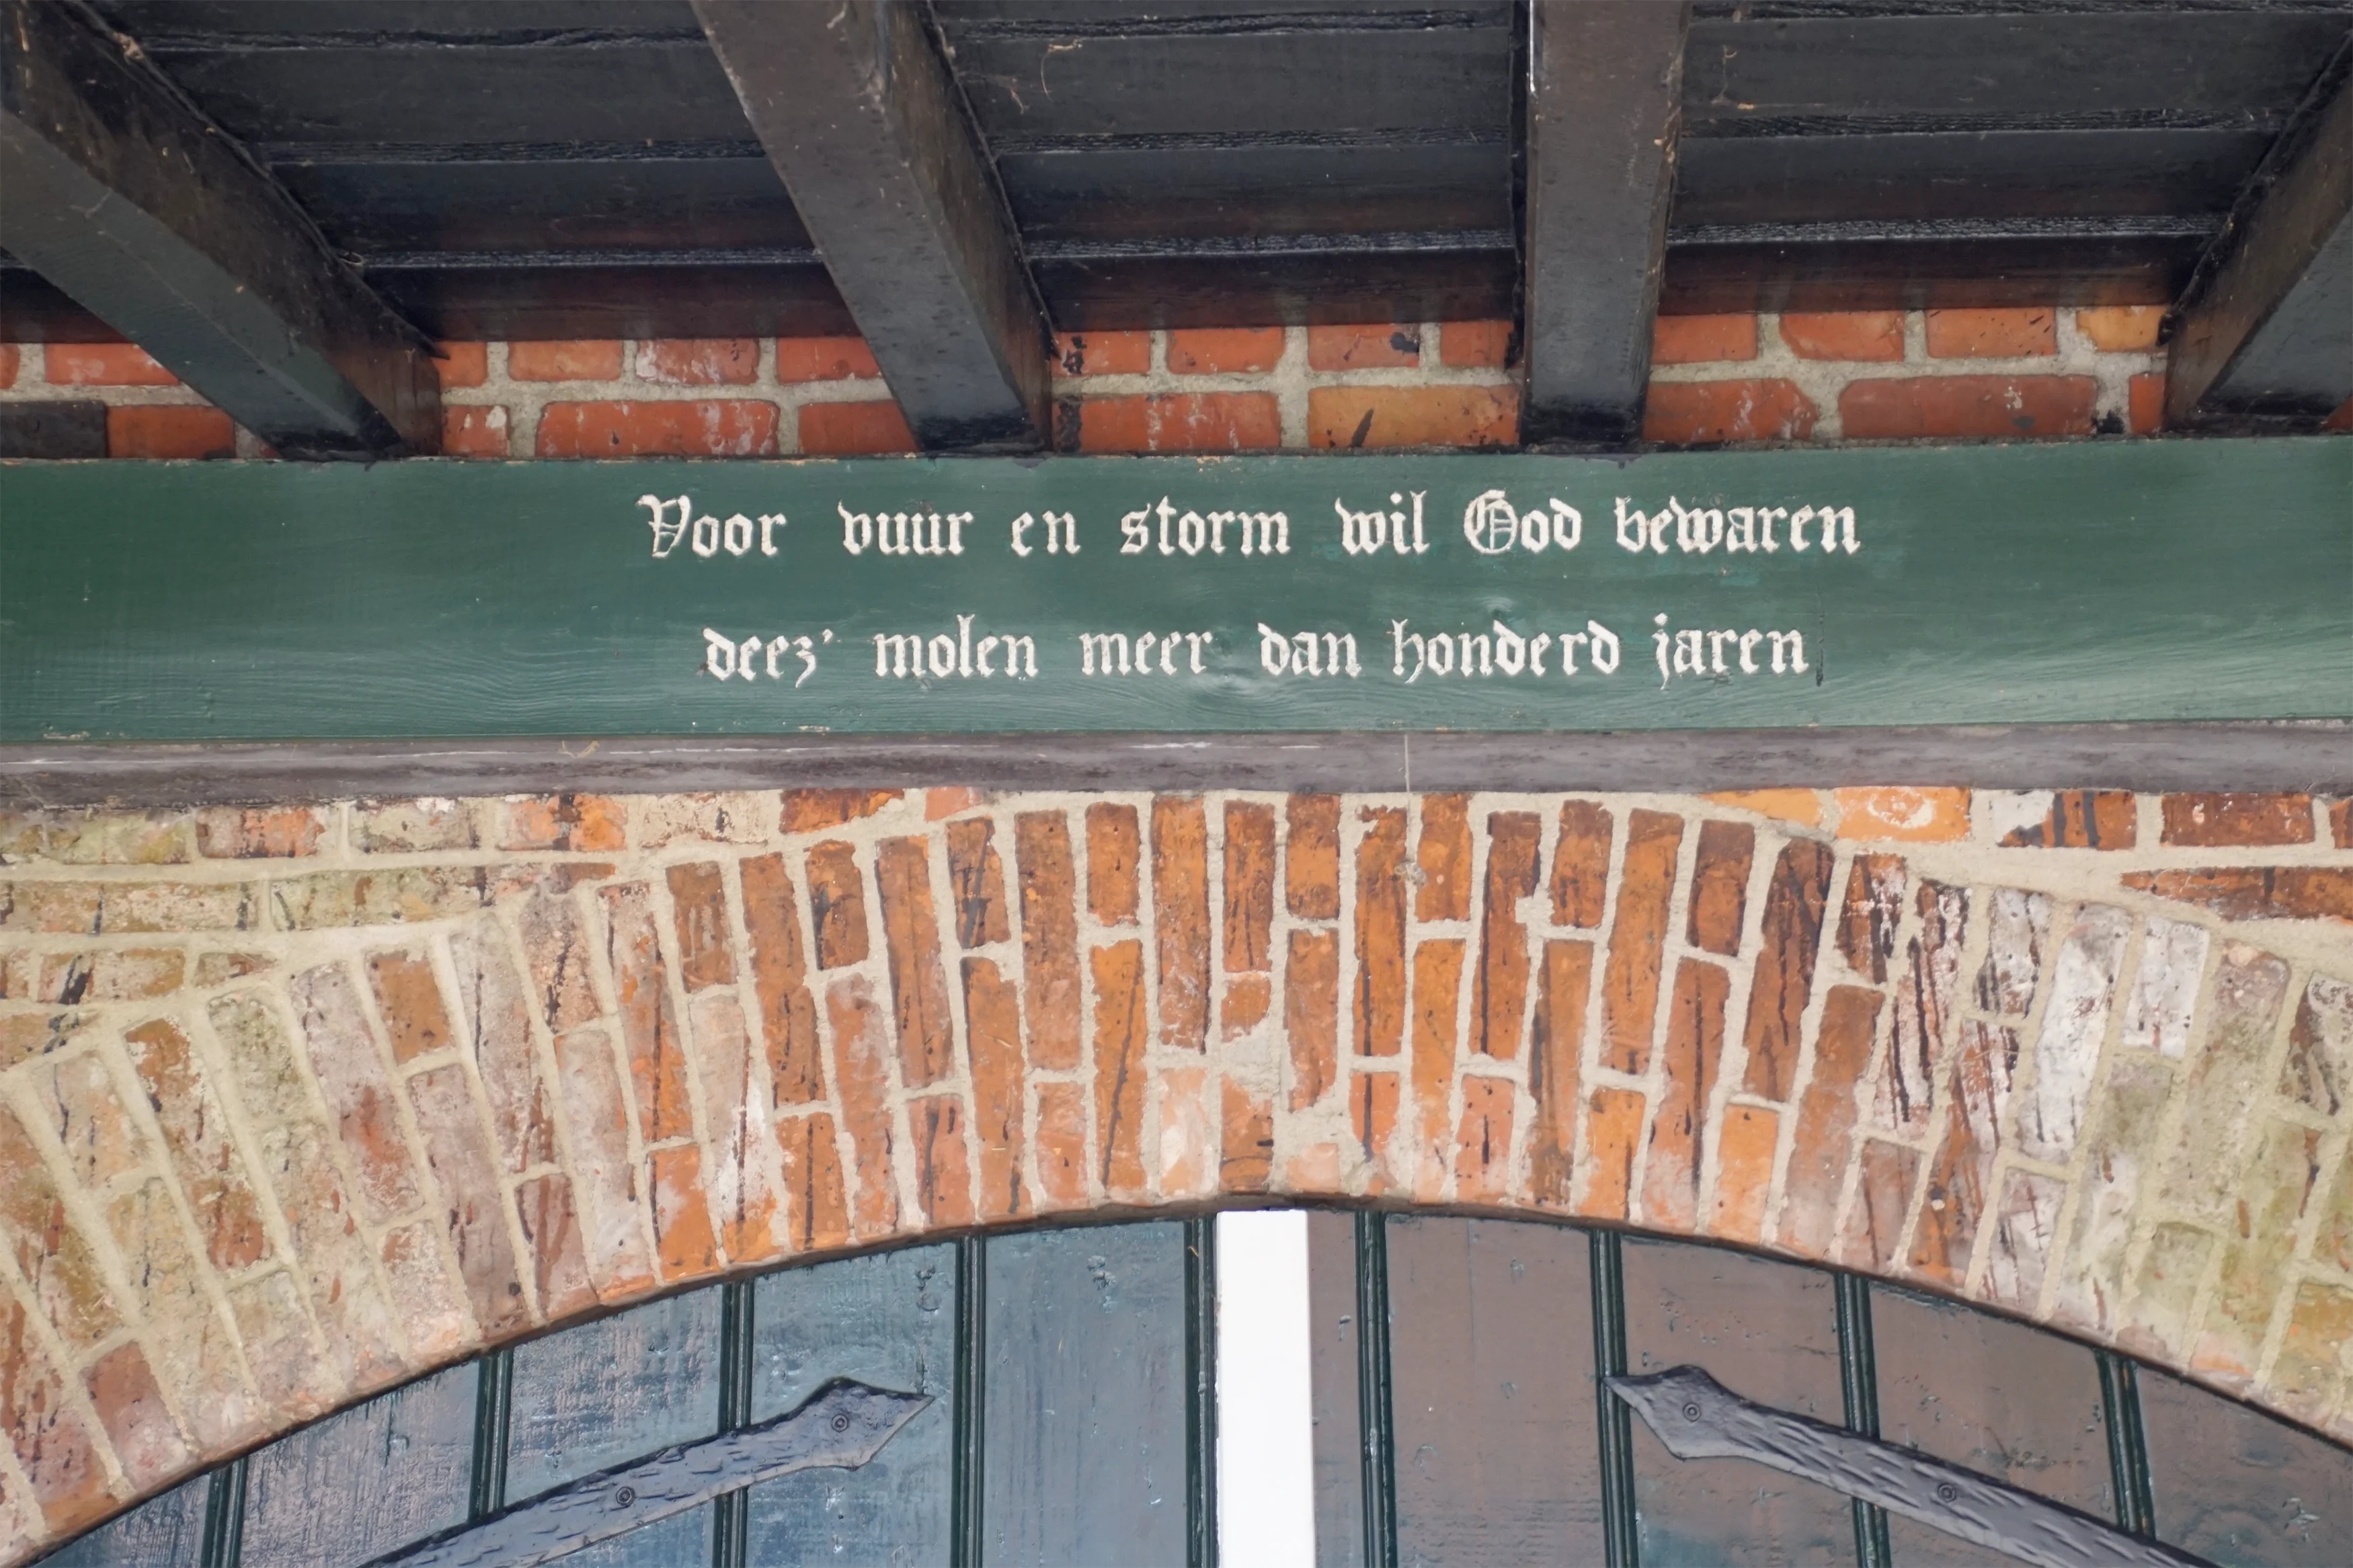 Voor vuur en storm wil God bewaren
deez' molen meer dan honderd jaren